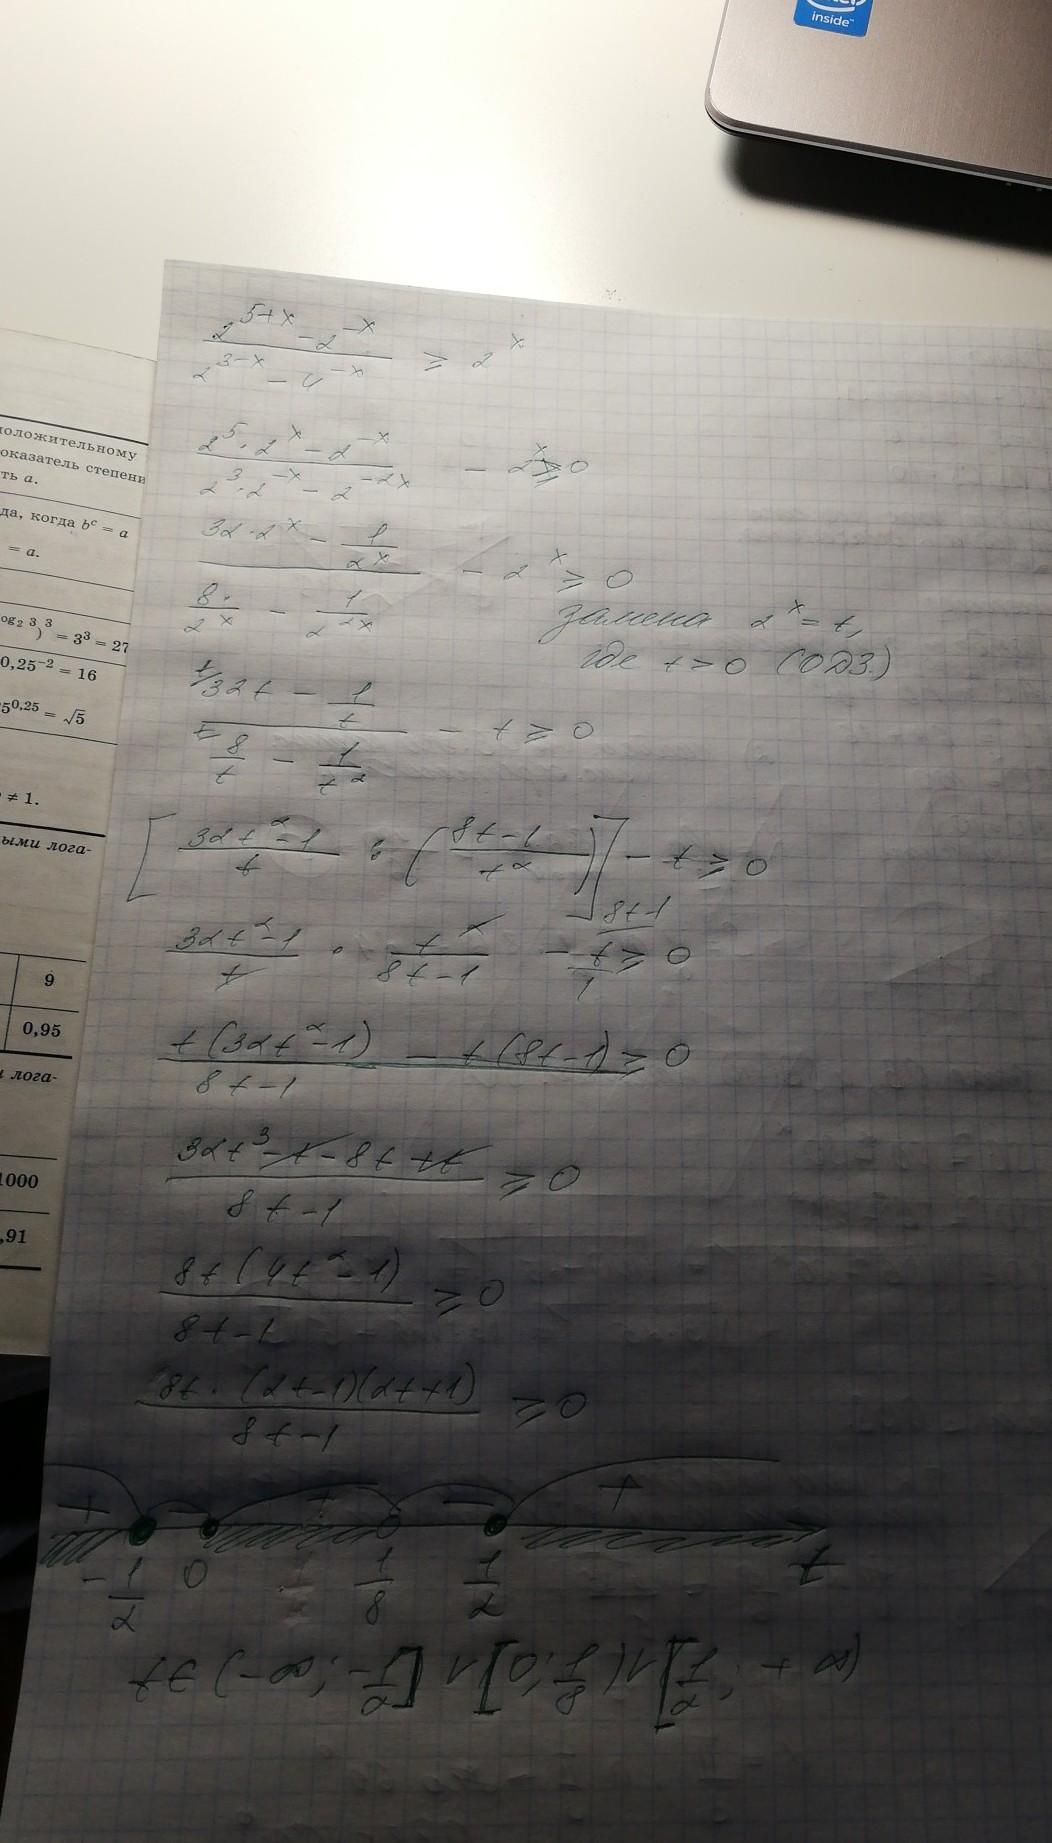 inside™
положительному
показатель степени
ть a.
да, когда b^c = a
= a.
log₂ 3)³ = 3³ = 27
0,25⁻² = 16
5^0,25 = √5
≠ 1.
ыми лога-
9
0,95
и лога-
1000
,91
(2^(5+x) - 2^(-x)) / (2^(3-x) - 4^(-x)) ≥ 2^x
(2^5 · 2^x - 2^(-x)) / (2^3 · 2^(-x) - 2^(-2x)) - 2^x ≥ 0
(32·2^x - 1/2^x) / (8·/2^x - 1/2^(2x)) - 2^x ≥ 0
замена 2^x = t,
где t > 0 (ОДЗ.)
(32t - 1/t) / (8/t - 1/t²) - t ≥ 0
[(32t² - 1)/t : ((8t - 1)/t²)] - t ≥ 0
(32t² - 1)/t · t²/(8t - 1) - t/1 ≥ 0
8t-1
(t(32t² - 1) - t(8t - 1)) / (8t - 1) ≥ 0
(32t³ - t - 8t + t) / (8t - 1) ≥ 0
8t(4t² - 1) / (8t - 1) ≥ 0
8t · (2t - 1)(2t + 1) / (8t - 1) ≥ 0
+ - + - +
-1/2 0 1/8 1/2 t
t ∈ (-∞; -1/2] ∪ [0; 1/8) ∪ [1/2; +∞)